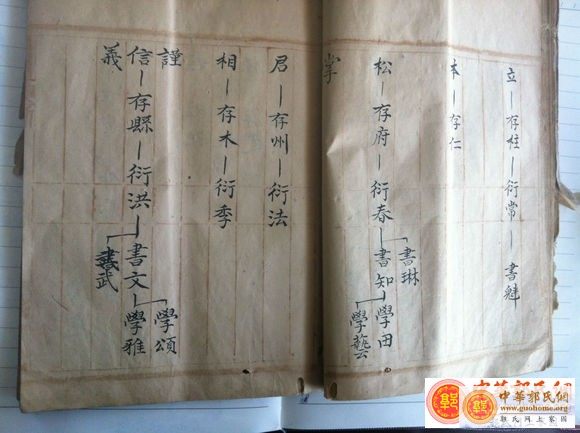 立—存柱—衍常—書魁
本—存仁
松—存府—衍春—書知—學田
書琳
學藝
掌
君—存州—衍法
相—存木—衍季
謹
信—存縣—衍洪—書文—學雅
學頌
書武
義
中華郭氏網
中華郭氏網
www.guohome.org
郭氏網上家園